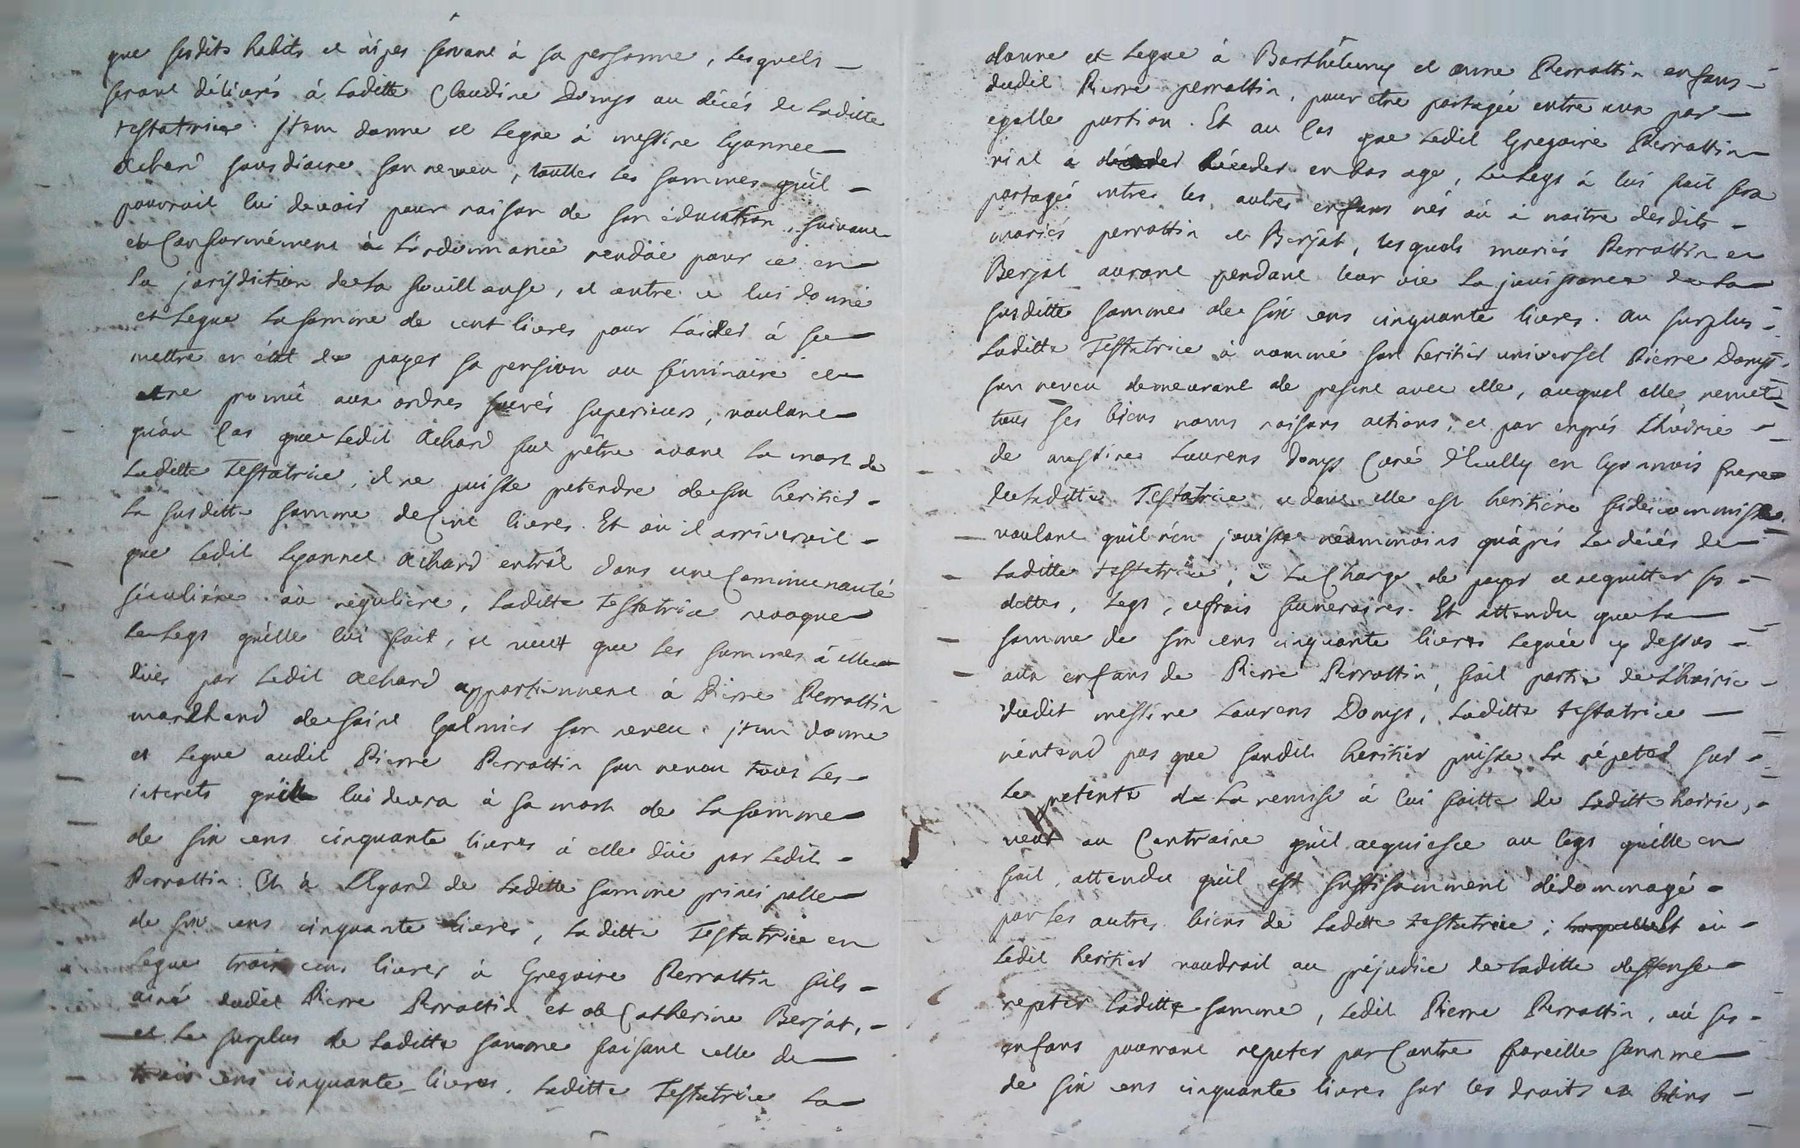 que sesdits habits et nipes servant à sa personne, lesquels
seront délivrés à Laditte Claudine Domps au décés de Laditte
testatrice. Item donne et legue à messire Lyonnel
Achard sousdiacre son neveu, touttes les sommes quil
pouvroit lui devoir pour raison de son éducation, suivant
et Conformément à Lordonnance rendüe pour ce en
la jurisdiction de la fouillouse, et outre ce lui donne
et Legue La somme de cent livres pour Laider à se
mettre en état de payer sa pension au séminaire et
etre promû aux ordres sacrés superieurs, voulant
qu'au Cas que Ledit Achard fut prêtre avant la mort de
Laditte Testatrice, il ne puisse pretendre de son heritier
La susditte somme de Cent livres. Et où il arriveroit
que Ledit Lyonnel Achard entrât dans une Communauté
séculière ou reguliere, Laditte testatrice revoque
Le Legs qu'elle lui fait, et veut que les sommes à elle
dües par Ledit Achard appartiennent à Pierre Perrottin
marchand de saint Galmier son neveu. Item donne
et Legue audit Pierre Perrottin son neveu tous Les
interets qu'il lui devra à sa mort de La somme
de six cens cinquante livres à elle düe par Ledit
Perrottin. Et à L'Egard de Laditte somme principalle
de six cens cinquante livres, Laditte Testatrice en
Legue trois cens livres à Gregoire Perrottin fils
ainé dudit Pierre Perrottin et de Catherine Berjat,
et Le surplus de Laditte somme faisant celle de
trois cens cinquante livres. Laditte Testatrice La
donne et Legue à Barthélemy et anne Perrottin enfans
dudit Pierre perrottin, pour être partagée entre eux par
egalle portion. Et au Cas que Ledit Gregoire Perrottin
vint à décéder en bas age, Le Legs à lui fait sera
partagé entre les autres enfans nés où à naitre desdits
mariés perrottin et Berjat, lesquels mariés Perrottin et
Berjat auront pendant leur vie La jouissance de La
susditte somme de six cens cinquante livres. au surplus
Laditte Testatrice à nommé son heritier universel Pierre Domps
son neveu demeurant de present avec elle, auquel elle remet
tous ses biens noms raisons actions, et par exprés L'hoirie
de messire Laurens Domps Curé d'Ecully en Lyonnois frere
de Laditte Testatrice, et dont elle est heritiere fideicommisse
voulant quil n'en jouisse néanmoins qu'après Le décés de
Laditte testatrice, à La Charge de payer et acquitter ses
dettes, Legs, et frais funeraires. Et attendu que La
somme de six cens cinquante livres Leguée cy dessus
aux enfans de Pierre Perrottin, fait partie de L'hoirie
dudit messire Laurens Domps, Laditte testatrice
n'entend pas que sondit heritier puisse La répeter sur
Le pretexte de La remise à lui faitte de Laditte hoirie,
veut au Contraire quil acquiesce au legs qu'elle en
fait, attendu qu'il est suffisamment dédommagé
par les autres biens de Laditte testatrice; et où
Ledit heritier voudroit au préjudice de Laditte deffense
repeter Laditte somme, Ledit Pierre Perrottin, où ses
enfans pourront repeter par Contre pareille somme
de six cens cinquante livres sur les droits et biens